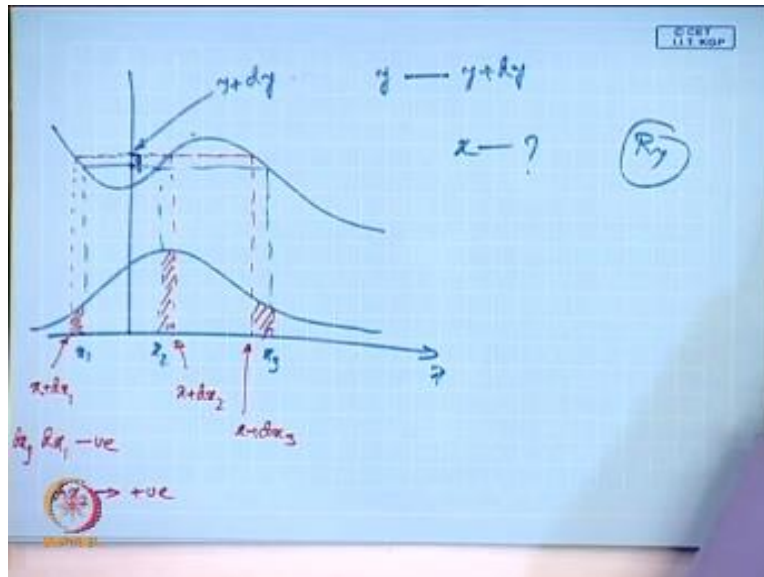 © CET
I.I.T. KGP
y+dy
y — y+dy
x — ?
x₁
x₂
x₃
x
x+dx₁
x+dx₂
x+dx₃
dx₃ dx₁ -ve
→ +ve